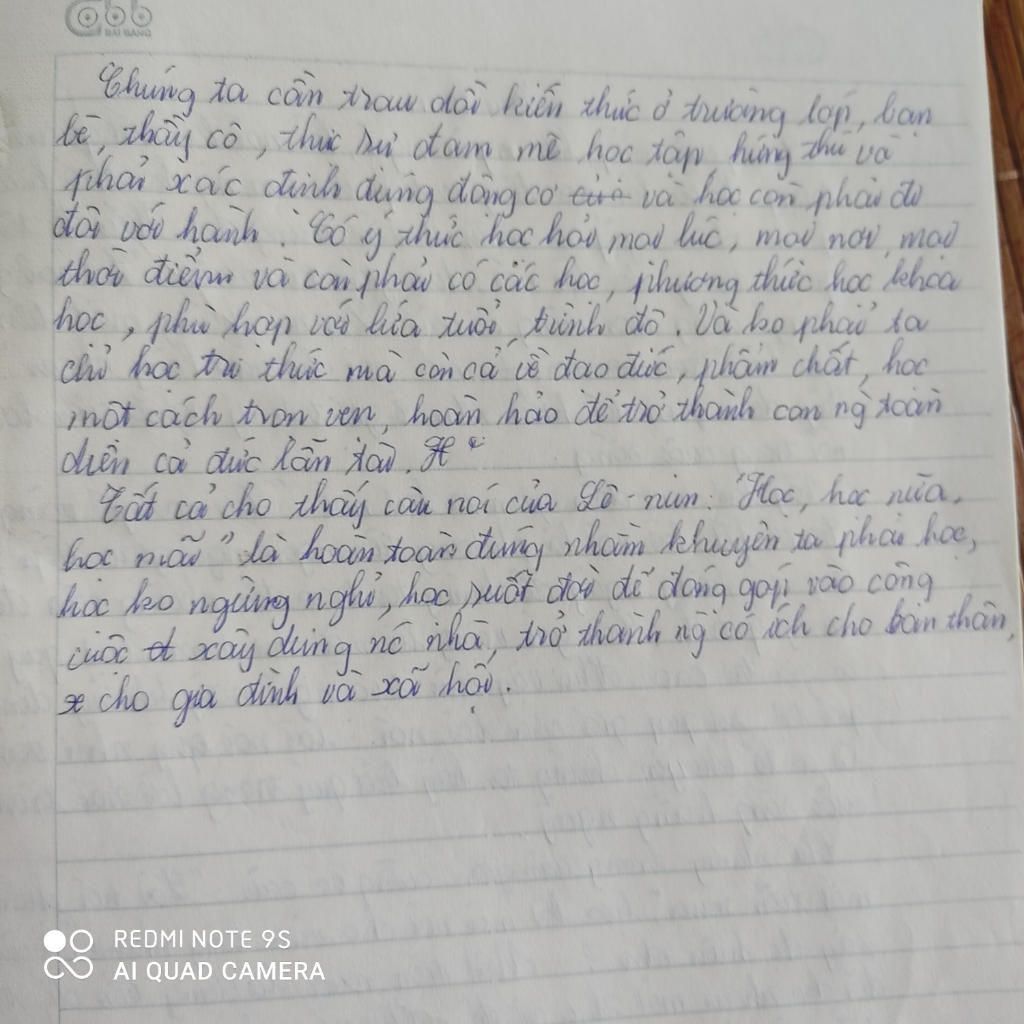 Cobb
ĐẠI BÀNG
Chúng ta cần trau dồi kiến thức ở trường lớp, bạn
bè, thầy cô, thực sự đam mê học tập hứng thú và
phải xác định đúng động cơ và học còn phải đi
đôi với hành. Có ý thức học hỏi mọi lúc, mọi nơi, mọi
thời điểm và còn phải có các học, phương thức học khoa
học, phù hợp với lứa tuổi, trình độ. Và ko phải ta
chỉ học tri thức mà còn cả về đạo đức, phẩm chất, học
một cách trọn vẹn, hoàn hảo để trở thành con ng toàn
diện cả đức lẫn tài.
Tất cả cho thấy câu nói của Lê-nin: "Học, học nữa,
học mãi" là hoàn toàn đúng nhằm khuyên ta phải học,
học ko ngừng nghỉ, học suốt đời để đóng góp vào công
cuộc xây dựng nc nhà, trở thành ng có ích cho bản thân,
cho gia đình và xã hội.
REDMI NOTE 9S
AI QUAD CAMERA